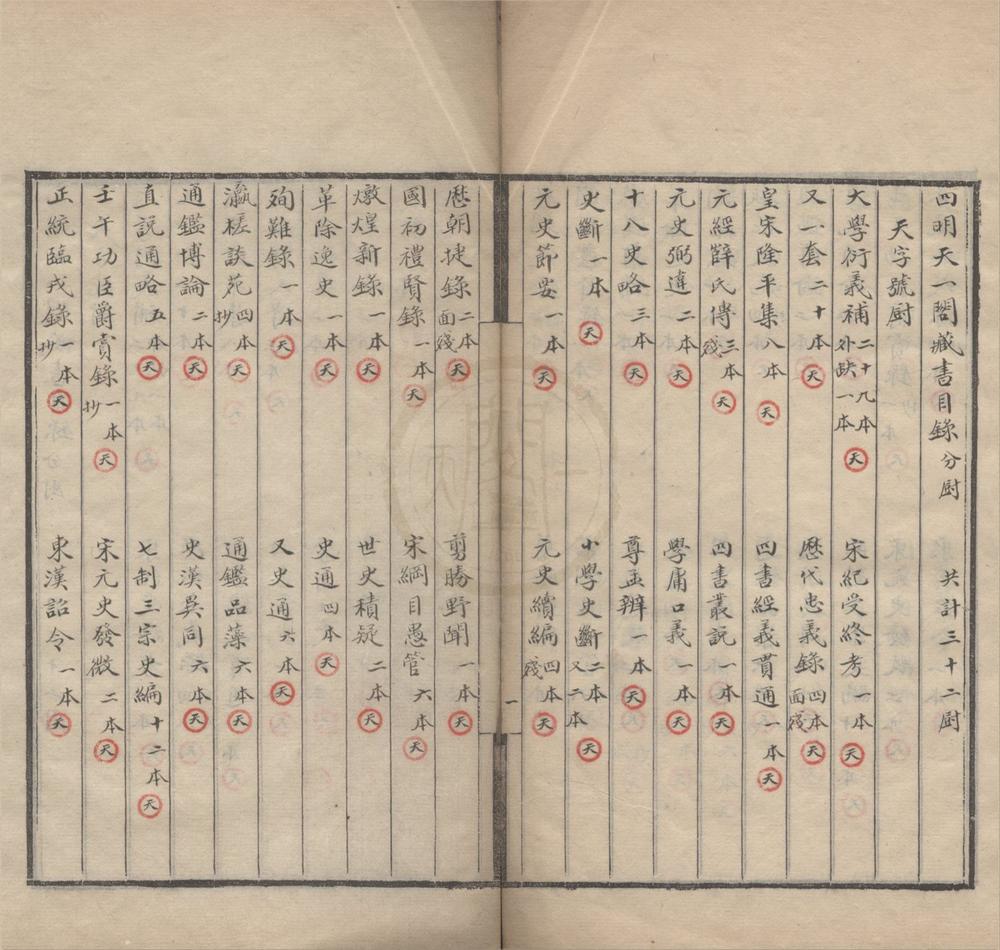 四明天一閣藏書目錄 分廚 共計三十二廚
天字號廚
大學衍義補 二十九本 外缺一本 天 宋紀受終考 一本 天
又一套 二十本 天 歷代忠義錄 四本 面殘 天
皇宋隆平集 八本 天 四書經義貫通 一本 天
元經薛氏傳 三本 殘 天 四書叢説 一本 天
元史弼違 二本 天 學庸口義 一本 天
十八史略 三本 天 尊孟辨 一本 天
史斷 一本 天 小學史斷 二本 又二本 天
元史節要 一本 天 元史續編 四本 殘 天
一
歷朝捷錄 二本 面殘 天 剪勝野聞 一本 天
國初禮賢錄 一本 天 宋綱目愚管 六本 天
燉煌新錄 一本 天 世史積疑 二本 天
革除逸史 一本 天 史通 四本 天
殉難錄 一本 天 又史通 六本 天
瀛槎談苑 四本 抄 天 通鑑品藻 六本 天
通鑑博論 二本 天 史漢異同 六本 天
直説通略 五本 天 七制三宗史編 十二本 天
壬午功臣爵賞錄 一本 抄 天 宋元史發微 二本 天
正統臨戎錄 一本 抄 天 東漢詔令 一本 天